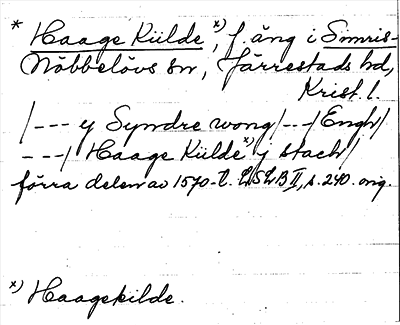 * Haage Külde x), f. äng i Simris-
Nöbbelövs sn, Järrestads hd,
Krist. l.
/--- y Syndre wong/--/Engh/
---/ Haage Külde x) j stach/
förra delen av 1570-t. LSLB II, s. 240. orig.
x) Haagekilde.